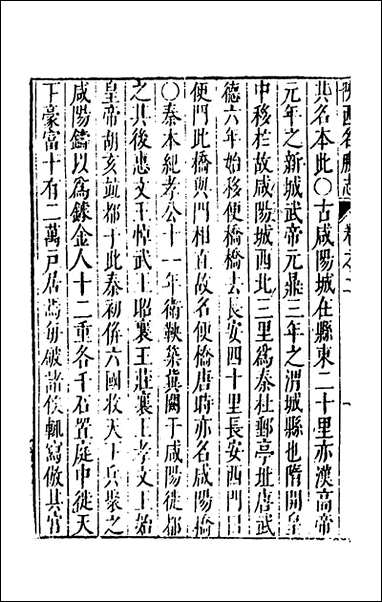 陝西名勝志 卷之二
其名本此〇古咸陽城在縣東二十里亦漢高帝
元年之新城武帝元鼎三年之渭城縣也隋開皇
中移於故咸陽城西北三里爲秦杜郵亭址唐武
德六年始移便橋橋去長安四十里長安西門曰
便門此橋與門相直故名便橋唐時亦名咸陽橋
〇秦本紀孝公十一年衛鞅築冀闕于咸陽徙都
之其後惠文王悼武王昭襄王莊襄王孝文王始
皇帝胡亥並都于此秦初併六國收天下兵聚之
咸陽鑄以爲鐻金人十二重各千石置庭中徙天
下豪富十有二萬戶居焉每破諸侯輒寫倣其宮